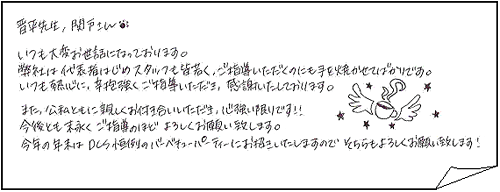 晋平先生, 関戸さん
いつも大変お世話になっております。
弊社は代表指はじめスタッフも皆若く、ご指導いただくのにも手を焼かせてばかりです。
いつも熱心に、辛抱強くご指導いただき、感謝いたしております。
また、公私ともに親しくお付き合いいただき、心強い限りです!!
今後とも末永くご指導のほど よろしくお願い致します。
今年の年末は DCS 恒例のバーベキューパーティーにお招きいたしますので そちらもよろしくお願い致します!